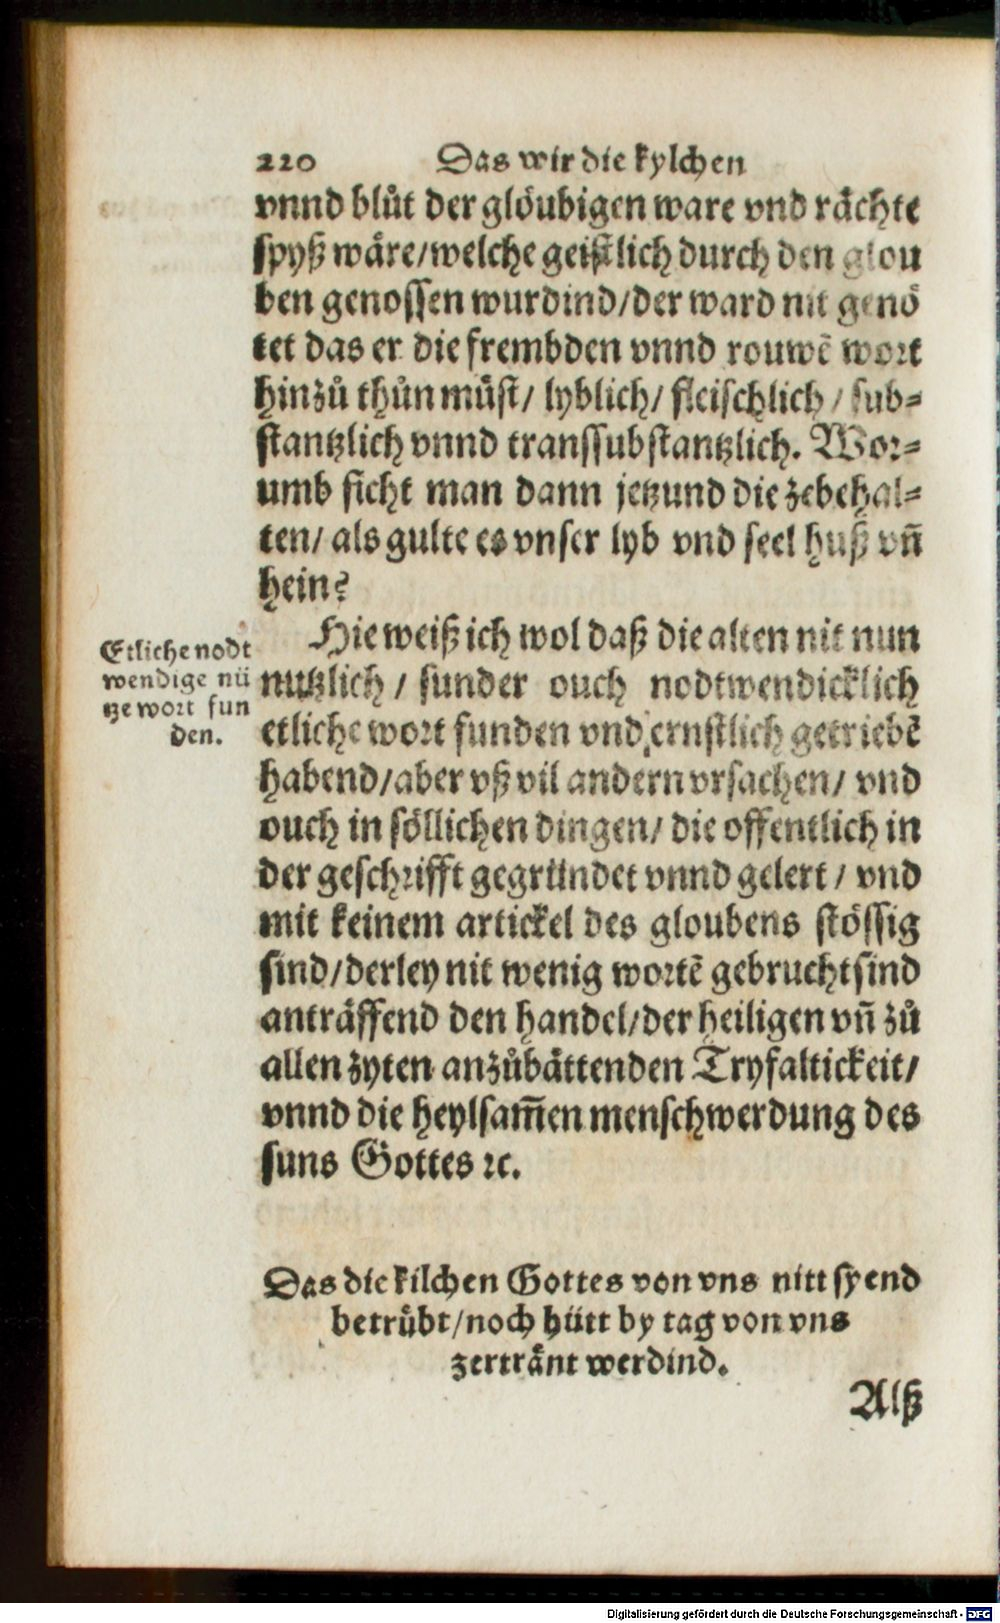 220 Das wir die kylchen
vnnd blůt der glöubigen ware vnd rächte
spyß wäre/welche geistlich durch den glou
ben genossen wurdind/der ward nit genö
tet das er die frembden vnnd rouwē wort
hinzů thůn müst/ lyblich/ fleischlich / sub=
stantzlich vnnd transsubstantzlich. Wor=
umb ficht man dann jetzund die zebehal=
ten/ als gulte es vnser lyb vnd seel huß vñ
hein?
Hie weiß ich wol daß die alten nit nun
nutzlich / sunder ouch nodtwendicklich
etliche wort funden vnd ernstlich getriebē
habend/aber vß vil andern vrsachen/ vnd
ouch in söllichen dingen/ die offentlich in
der geschrifft gegründet vnnd gelert / vnd
mit keinem artickel des gloubens stössig
sind/derley nit wenig wortē gebrucht sind
anträffend den handel/der heiligen vñ zů
allen zyten anzůbättenden Tryfaltickeit/
vnnd die heylsam̄en menschwerdung des
suns Gottes ꝛc.
Etliche nodt
wendige nü
tze wort fun
den.
Das die kilchen Gottes von vns nitt syend
betrübt/noch hütt by tag von vns
zertränt werdind.
Alß
Digitalisierung gefördert durch die Deutsche Forschungsgemeinschaft - DFG